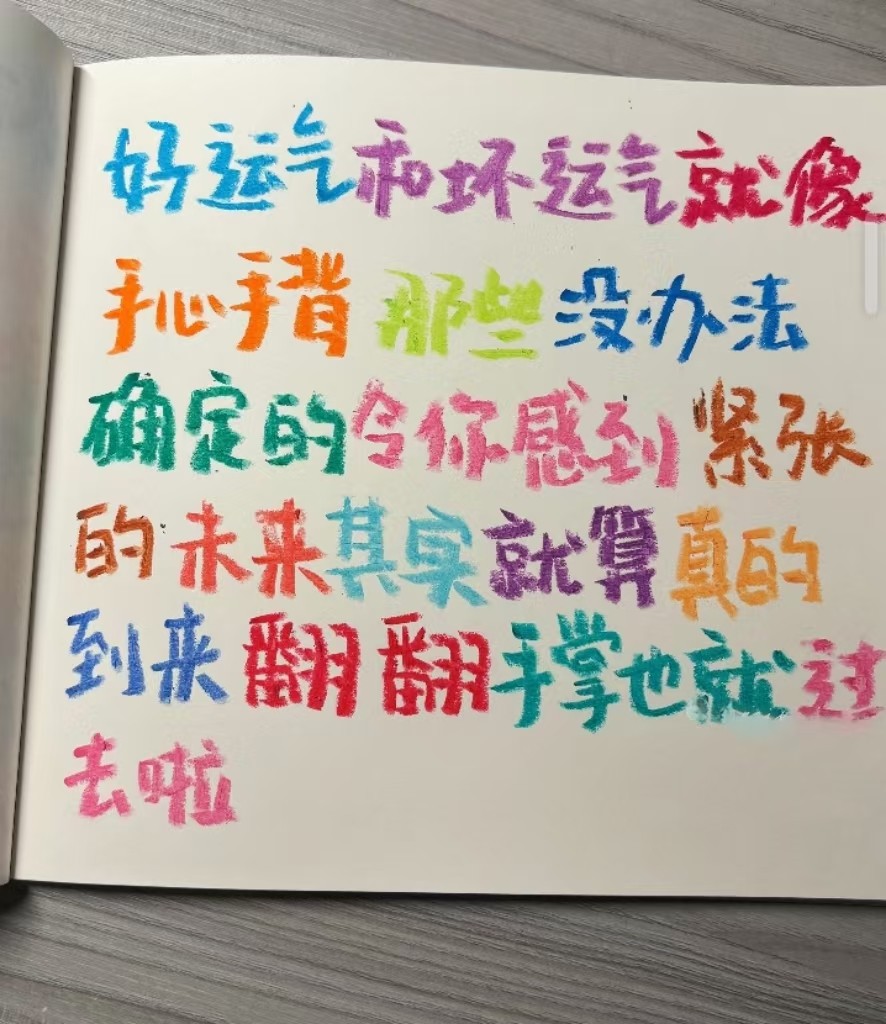 好运气和坏运气就像
手心手背 那些没办法
确定的令你感到紧张
的未来其实就算真的
到来翻翻手掌也就过
去啦